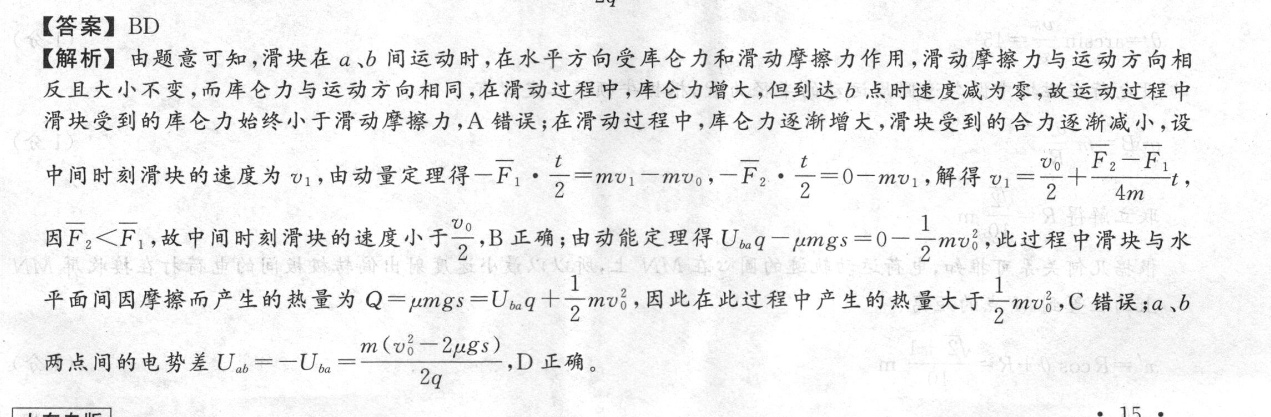 【答案】BD
【解析】由题意可知,滑块在 a、b 间运动时,在水平方向受库仑力和滑动摩擦力作用,滑动摩擦力与运动方向相
反且大小不变,而库仑力与运动方向相同,在滑动过程中,库仑力增大,但到达 b 点时速度减为零,故运动过程中
滑块受到的库仑力始终小于滑动摩擦力,A 错误;在滑动过程中,库仑力逐渐增大,滑块受到的合力逐渐减小,设
中间时刻滑块的速度为 v₁,由动量定理得 −F̅₁·t/2=mv₁−mv₀,−F̅₂·t/2=0−mv₁,解得 v₁=v₀/2+(F̅₂−F̅₁)/4m t,
因F̅₂<F̅₁,故中间时刻滑块的速度小于v₀/2,B 正确;由动能定理得 U_ba q−μmgs=0−1/2 mv₀²,此过程中滑块与水
平面间因摩擦而产生的热量为 Q=μmgs=U_ba q+1/2 mv₀²,因此在此过程中产生的热量大于1/2 mv₀²,C 错误;a、b
两点间的电势差 U_ab=−U_ba=m(v₀²−2μgs)/2q,D 正确。
· 15 ·